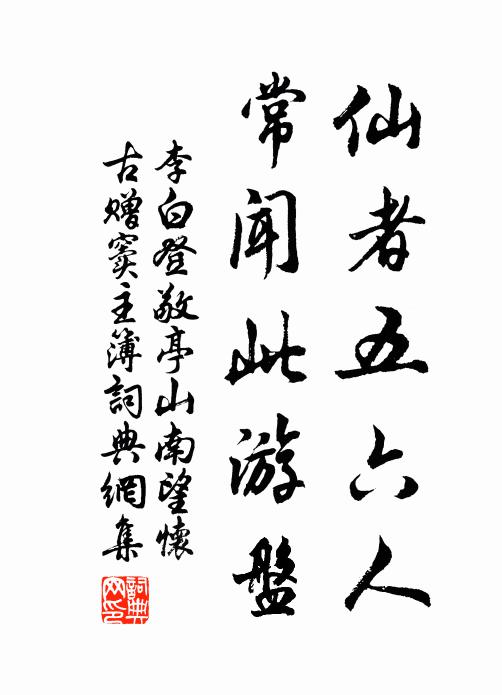 仙者五六人
常闻此游盤
李白登敬亭山南望懷
古赠窦主簿詞典網集
詞典網印